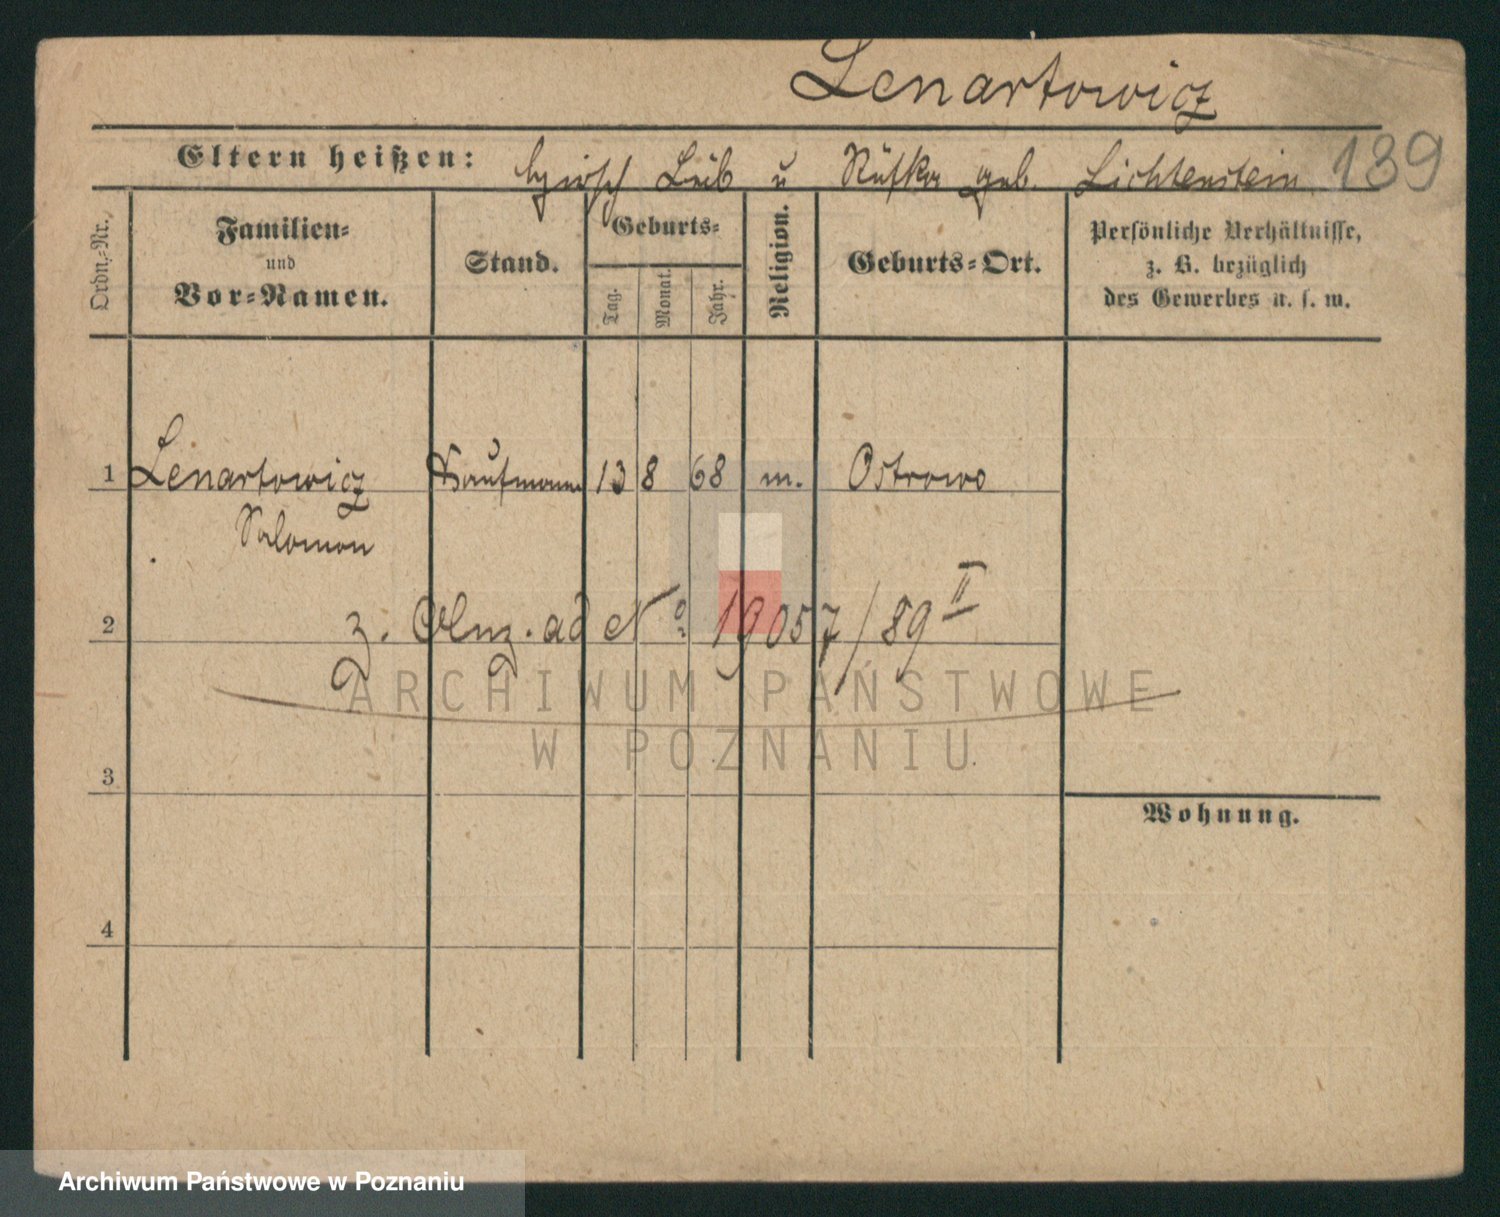 Lenartowicz
Eltern heißen: Hirsch Leib u Rifka geb. Lichtenstein. 139
Ordn.-Nr.
Familien-
und
Vor-Namen.
Stand.
Geburts-
Tag.
Monat.
Jahr.
Religion.
Geburts-Ort.
Persönliche Verhältnisse,
z. B. bezüglich
des Gewerbes u. s. w.
1 Lenartowicz Kaufmann 13 8 68 m. Ostrowo
Salomon
2 z. Anz. ad No 19057/89 II
ARCHIWUM PAŃSTWOWE
W POZNANIU
3
Wohnung.
4
Archiwum Państwowe w Poznaniu